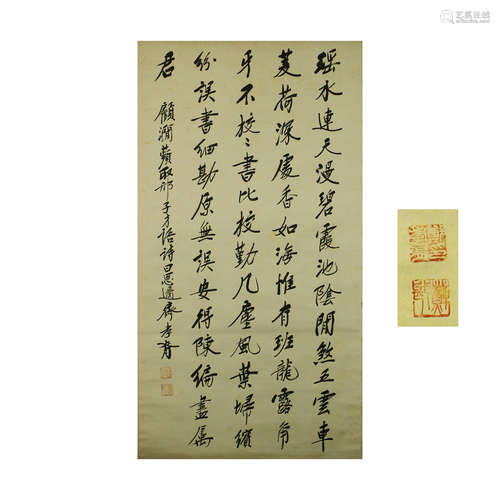 瑶水連天漫碧霞池陰閒煞五雲車
菱荷深處香如海惟有班龍露角
牙不校〻書比校勤几塵風葉埽繽
紛誤書細勘原無誤安得陳編盡属
君
顧澗蘋取邢子才語思適齋孝胥
艺狐在线